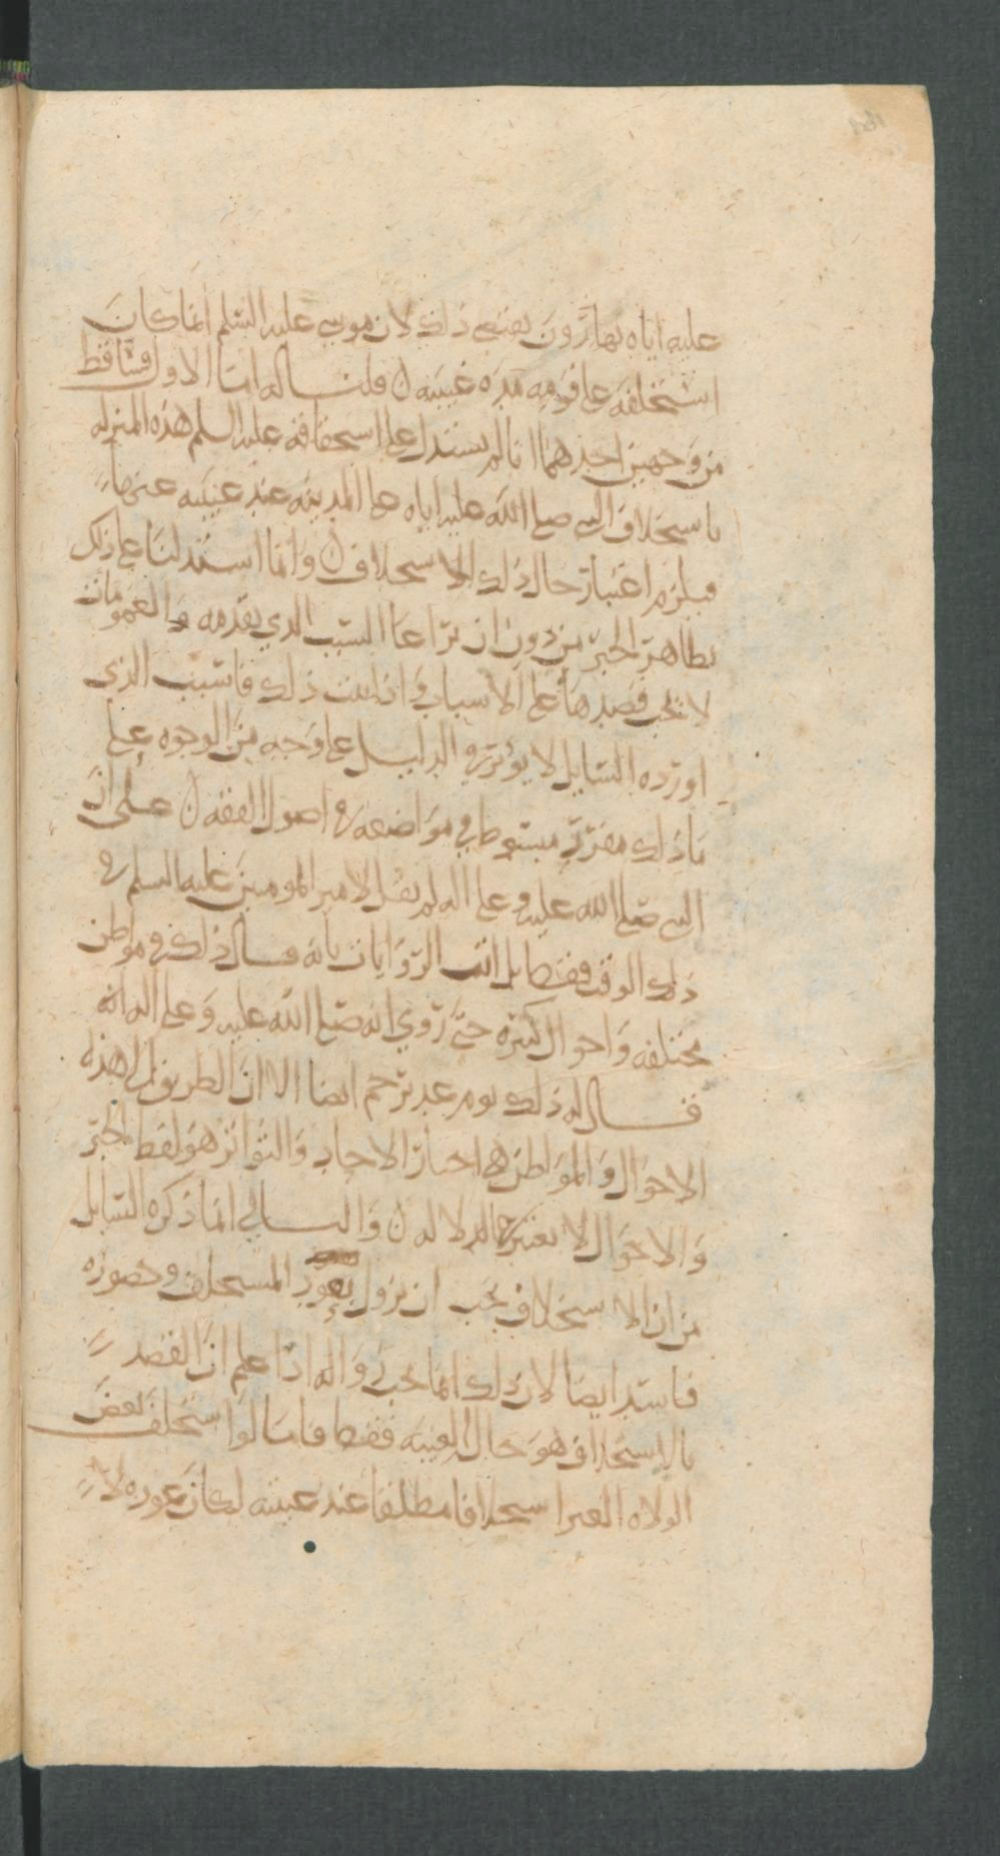 عليه اياه بهارون يقتضي ذلك لان موسى عليه السلم انما كان
استخلفه على قومه مدة غيبته ن قلنا له اما الاول فساقط
من وجهين احدهما انا لم نستدل على استحقاقه عليه السلم هذه المنزله
باستخلاف النبي صلى الله عليه اياه على المدينه عند غيبته عنها
فيلزم اعتبار حال ذلك الاستخلاف ن وانما استدللنا على ذلك
بظاهر الخبر من دون ان نراعا السبب الذي تقدمه والعمومات
لا يجب قصرها على الاسباب واذا ثبت ذلك فالسبب الذي
اورده السايل لا يؤثر في الدليل على وجه من الوجوه على
ما ذلك مقرر مبسوط في مواضعه في اصول الفقه ن على ان
النبي صلى الله عليه وعلى اله لم يقل لامير المومنين عليه السلم في
ذلك الوقت فقط بل اتت الروايات بانه قال ذلك في مواطن
مختلفه واحوال كثيره حتى روي انه صلى الله عليه وعلى اله انه
قال له ذلك يوم غدير خم ايضا الا ان الطريق الى هذه
الاحوال والمواطن هي اخبار الاحاد والتواتر هو لفظ الخبر
والاحوال لا تعتبر في الدلاله ن والثاني انما ذكره السايل
من ان الاستخلاف يجب ان يزول بعود المستخلف وحضوره
فاسد ايضا لان ذلك انما يجب زواله اذا علم ان القصد
بالاستخلاف هو حال الغيبه فقط فاما لو استخلف بعض
الولاه الغير استخلافا مطلقا عند غيبته لكان عوده لا